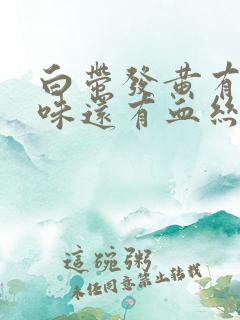 白带发黄有
味还有血丝
这碗粥
未经同意禁止转载